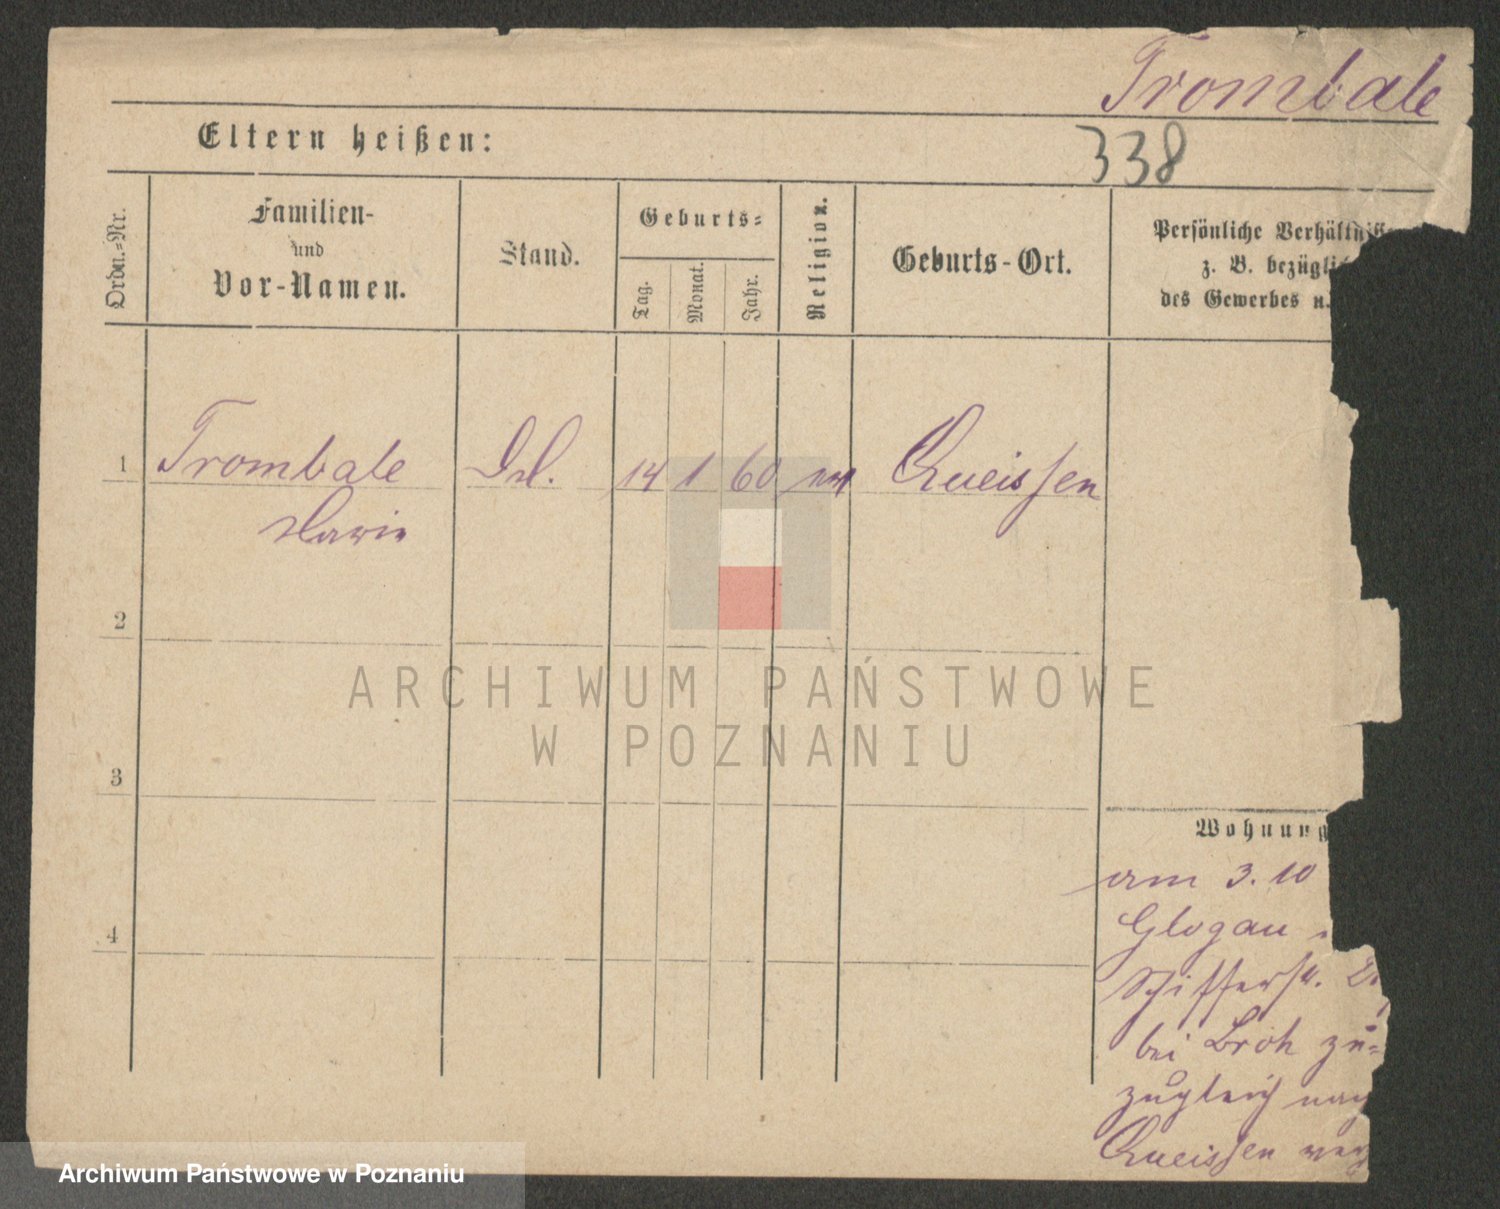 Trombale
Eltern heißen:
338
Ordn.-Nr.
Familien-
und
Vor-Namen.
Stand.
Geburts-
Tag.
Monat.
Jahr.
Religion.
Geburts-Ort.
Persönliche Verhältnisse
z. B. bezügli
des Gewerbes u.
1 Trombale 14 1 60 Queissen
Marie
2
3
4
Wohnung
am 3. 10
Glogau
Schifferstr.
bei Broh zu-
zugleich nach
Queissen
ARCHIWUM PAŃSTWOWE
W POZNANIU
Archiwum Państwowe w Poznaniu